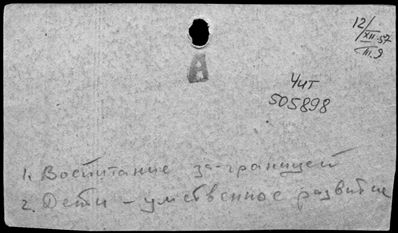 12/XII-57
III.9
А
Чит
505898
1. Воспитание за-границей
2. Дети - умственное развитие